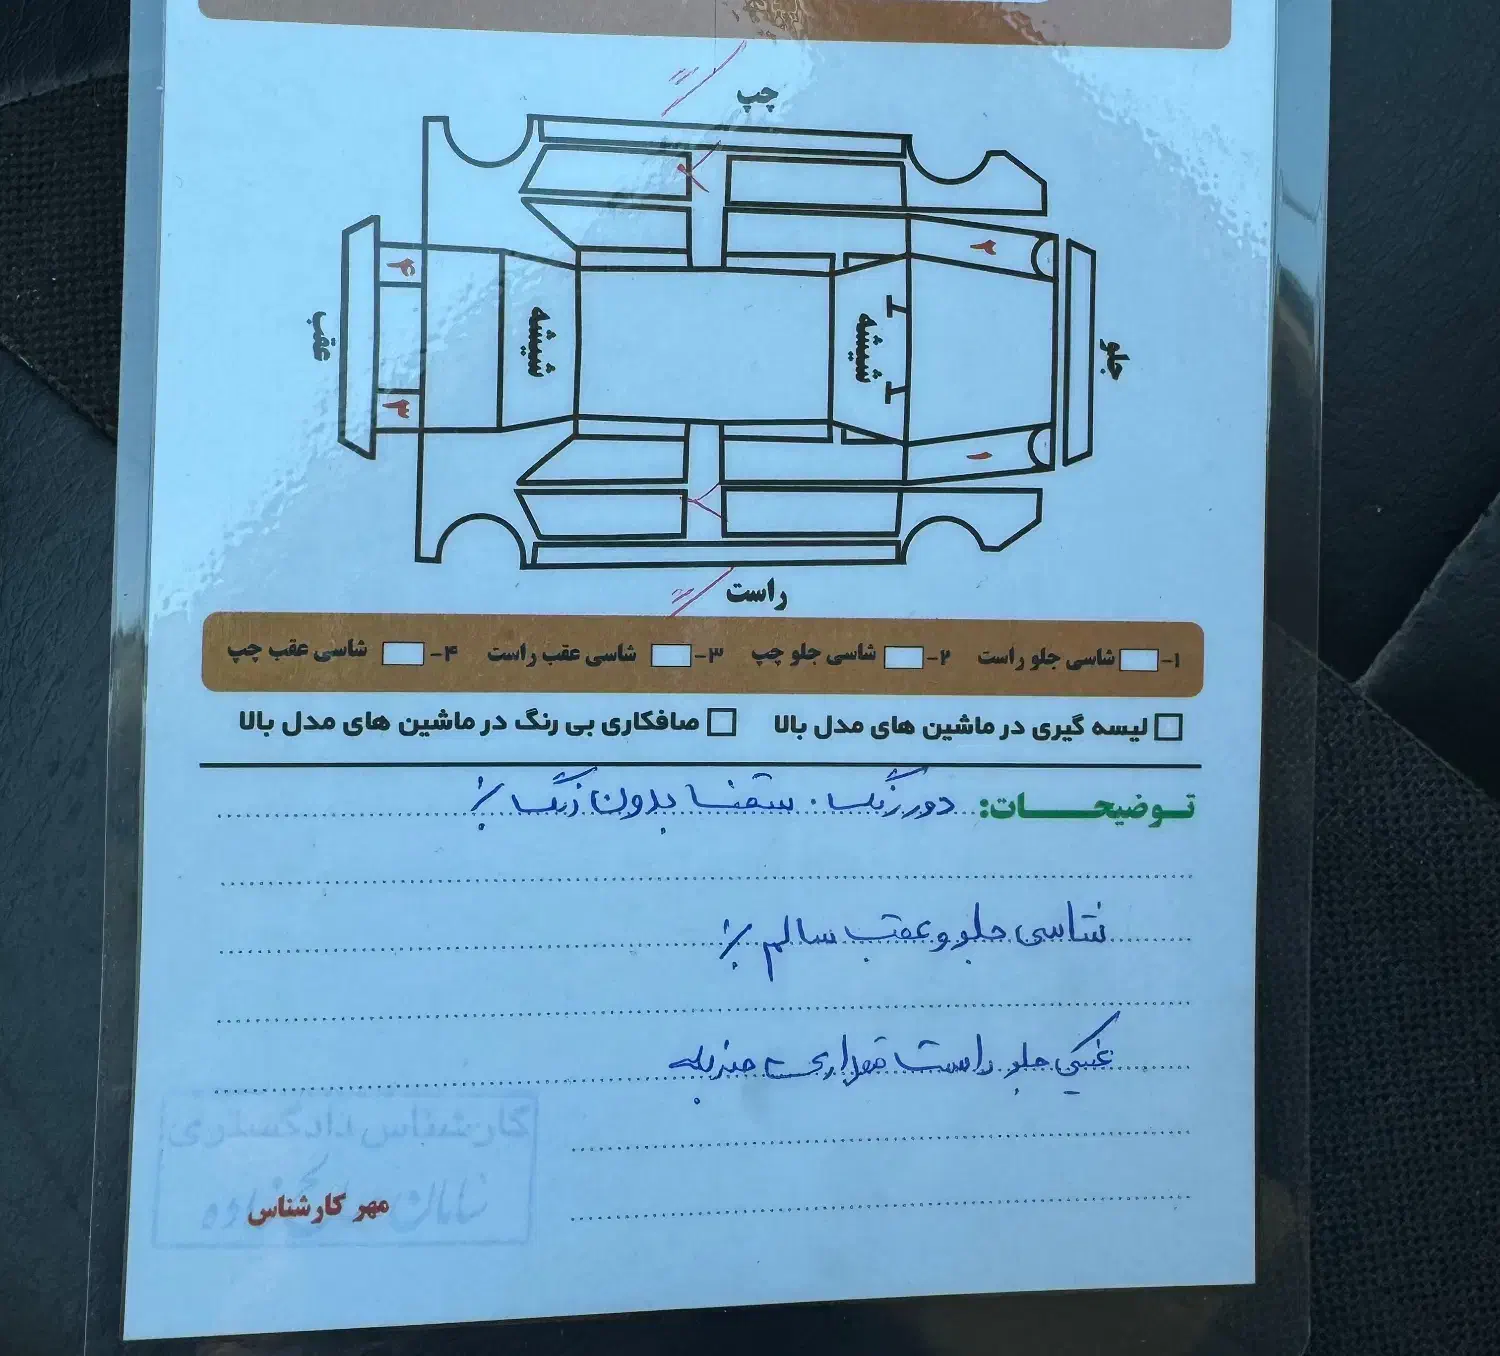 چپ
۲
۴
شیشه
شیشه
جلو
عقب
۳
۱
راست
۱- شاسی جلو راست ۲- شاسی جلو چپ ۳- شاسی عقب راست ۴- شاسی عقب چپ
لیسه گیری در ماشین های مدل بالا صافکاری بی رنگ در ماشین های مدل بالا
توضیحات: دور رنگ. سقف بدون رنگ
شاسی جلو و عقب سالم
جلو راست
کارشناس دادگستری
مهر کارشناس